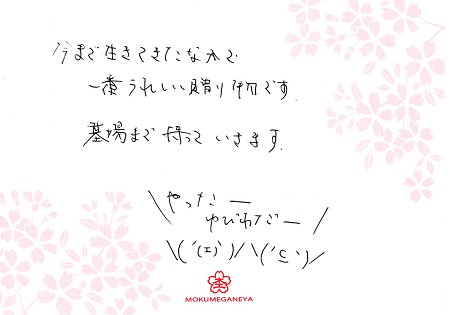 今まで生きてきたなかで
一番うれしい贈り物です
墓場まで持っていきます.
\やったー
ゆびわだー/
\(´(エ)`)/\(´⊆`)/
MOKUMEGANEYA